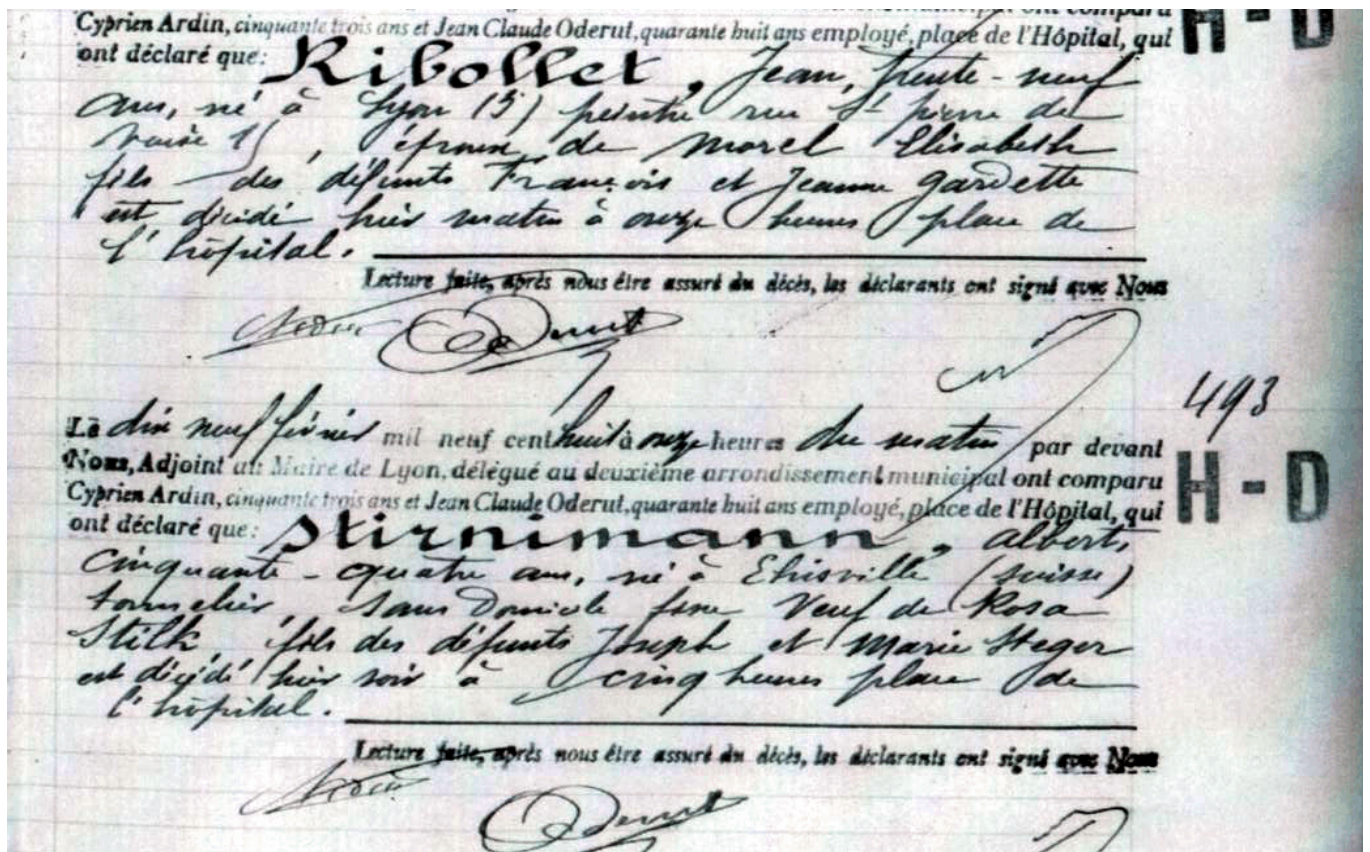 Cyprien Ardin, cinquante trois ans et Jean Claude Oderut, quarante huit ans employé, place de l'Hôpital, qui
H - D
ont déclaré que: Ribollet, Jean, trente-neuf
ans, né à Lyon (5) peintre rue St pierre de
vaise 15, époux de Morel Elisabeth
fils des défunts François et Jeanne Gardette
est décidé hier matin à onze heures place de
l'hôpital.
Lecture faite, après nous être assuré du décès, les déclarants ont signé avec Nous
Ardin Oderut
493
Le dix neuf février mil neuf cent huit à onze heures du matin par devant
Nous, Adjoint au Maire de Lyon, délégué au deuxième arrondissement municipal ont comparu
H - D
Cyprien Ardin, cinquante trois ans et Jean Claude Oderut, quarante huit ans employé, place de l'Hôpital, qui
ont déclaré que: Stirnimann, Albert,
cinquante-quatre ans, né à Ehisville (suisse)
tonnelier, sans Domicile fixe Veuf de Rosa
Stilk, fils des défunts Joseph et Marie Steger
est décidé hier soir à cinq heures place de
l'hôpital.
Lecture faite, après nous être assuré du décès, les déclarants ont signé avec Nous
Ardin
Oderut